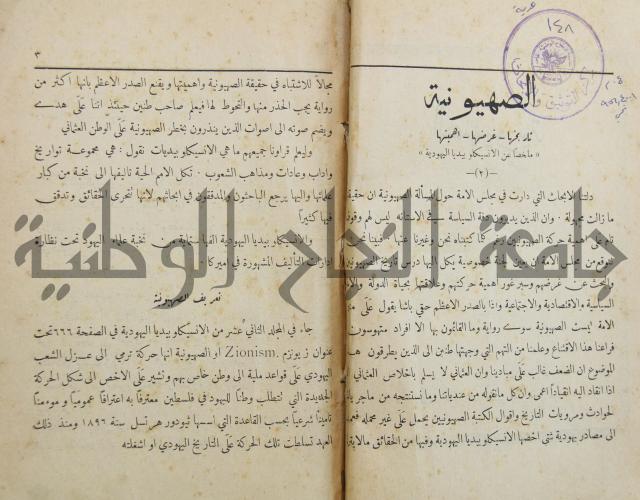 عربية
١٤٨
الصهيونية
تاريخها - غرضها - اهميتها
« ملخصاً عن الانسيكلوبيديا اليهودية »
—(٢)—
دلتنا الابحاث التي دارت في مجلس الامة حول المسألة الصهيونية ان حقيقة
ما زالت مجهولة . وان الذين يديرون دفة السياسة في الاستانة ليس لهم وقوف
تام على اهمية حركة الصهيونيين
من مجلس الامة خصوصية يكل اليها درس تاريخ الصهيونية
والبحث عن غرضهم وسير غور اهمية حركتهم وعلاقتها بحياة الدولة والامة
السياسية والاقتصادية والاجتماعية واذا بالصدر الاعظم حقي باشا يقول على
الامة ليست الصهيونية سوى رواية وما القائمون بها الا افراد متهوسون
فراعنا هذا الاقتناع وعلمنا من التهم التي وجهتها طنين الى الذين يطرقون هذا
الموضوع ان الضعف غالب على مبادينا وان العثماني لا يسلم باخلاص العثماني الا
اذا انقاد اليه انقياداً اعمى وان كل مانقوله من عندياتنا وما نستنتجه من ماجريات
الحوادث ومرويات التاريخ واقوال الكتبة الصهيونيين يحمل على غير محمله فعمدنا
الى مصادر يهودية شتى اخصها الانسيكلوبيديا اليهودية وفيها من الحقائق مالا يترك
٣
مجالاً للاشتباه في حقيقة الصهيونية واهميتها ويقنع الصدر الاعظم بانها اكثر من
رواية يجب الحذر منها والتحوط لها فيعلم صاحب طنين حينئذ اننا على هدى
ويضم صوته الى اصوات الذين ينذرون بخطر الصهيونية على الوطن العثماني
وليعلم قراونا جميعهم ما هي الانسيكلوبيديات نقول : هي مجموعة تواريخ
واداب وعادات ومذاهب الشعوب . تكل الامم الحية تاليفها الى نخبة من كبار
علمائها واليها يرجع الباحثون والمدققون في ابحاثهم لانها تتحرى الحقائق وتدقق
فيها كثيراً
والانسيكلوبيديا اليهودية الفها من نخبة علماء اليهود تحت نظارة
ادارات التأليف المشهورة في اميركا .
تعريف الصهيونية
جاء في المجلد الثاني عشر من الانسيكلوبيديا اليهودية في الصفحة ٦٦٦ تحت
عنوان زيونزم .Zionism او الصهيونية انها حركة ترمي الى عزل الشعب
اليهودي على قواعد ملية الى وطن خاص بهم وتشير على الاخص الى شكل الحركة
الجديدة التي تتطلب وطناً لليهود في فلسطين معترفاً به اعترافاً عمومياً وموءمناً
تاميناً شرعياً بحسب القاعدة التي اسسها تيودور هرتسل سنة ١٨٩٦ ومنذ ذلك
العهد تسلطت تلك الحركة على التاريخ اليهودي او اشغلته
جامعة النجاح الوطنية